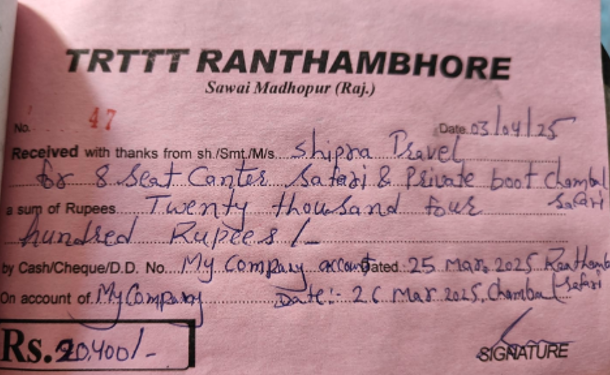 TRTTT RANTHAMBHORE
Sawai Madhopur (Raj.)
No. 47 Date 03/04/25
Received with thanks from sh./Smt./M/s. Shipra Travel
for 8 Seat Canter Safari & Private boot Chambal Safari
a sum of Rupees Twenty thousand four
hundred Rupees /-
by Cash/Cheque/D.D. No. My Company account Dated 25 Mar. 2025 Ranthamb
On account of My Company Date:- 26 Mar 2025, Chambal Safari
Rs. 20,400/-
SIGNATURE